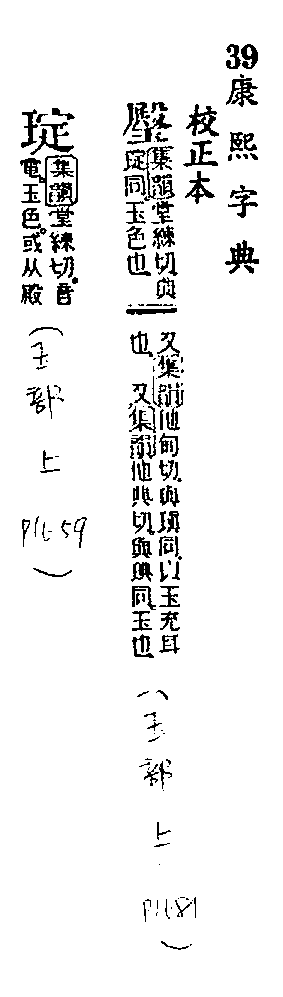 39康熙字典
校正本
集韻堂練切與
琔同玉色也
又集韻他甸切與瑱同以玉充耳
也 又集韻他典切與琠同玉也
(玉部上
P11-81)
琔
集韻堂練切音
電玉色或从殿
(玉部上
P11-59)